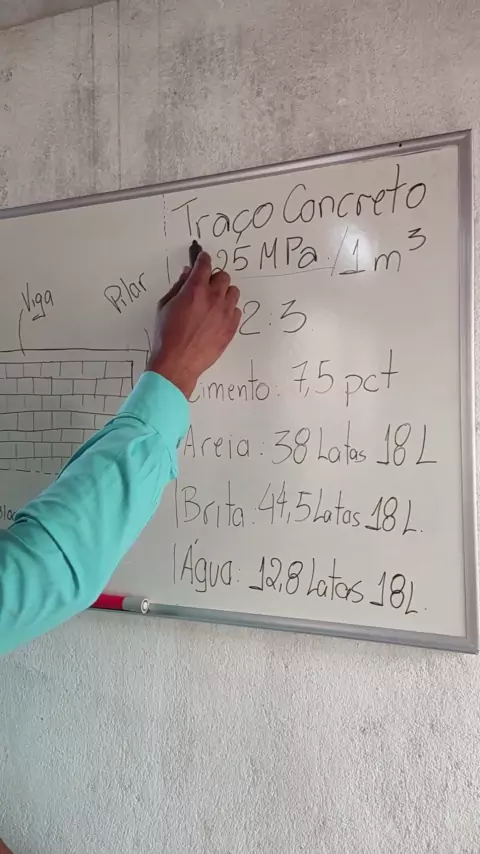 Traço Concreto
25 MPa / 1 m³
2:3
Cimento: 7,5 pct
Areia: 38 Latas 18 L
Brita: 44,5 Latas 18 L.
Água: 12,8 Latas 18 L.
Viga
Pilar